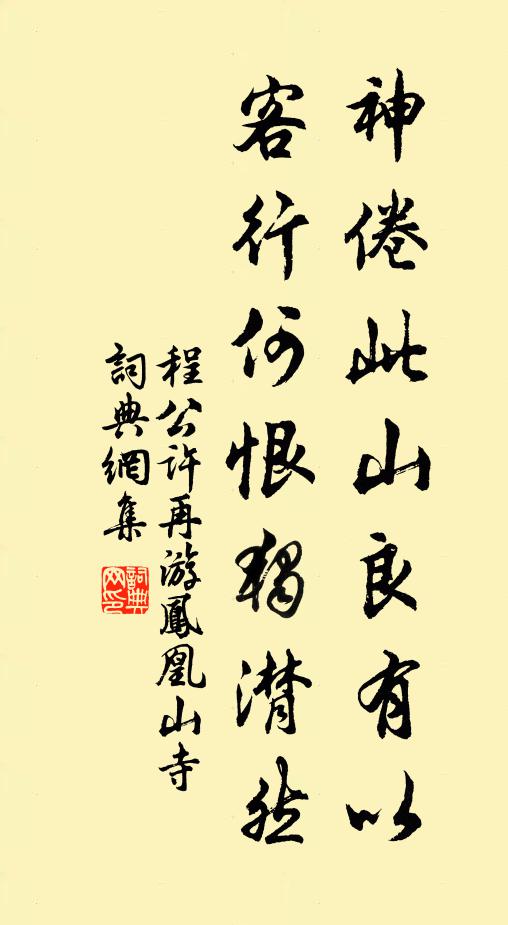 神倦此山良有以
客行何恨獨潸然
程公許再游鳳凰山寺
詞典網集
詞典網印